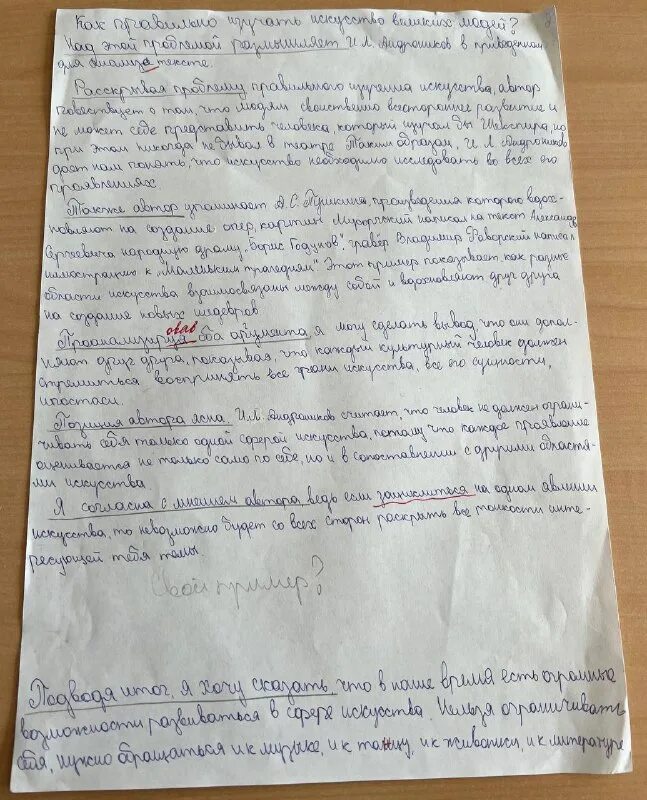 Как правильно изучать искусство великих людей?
Над этой проблемой размышляет И.Л. Андроников в приведённом
для анализа тексте.
Раскрывая проблему правильного изучения искусства, автор
повествует о том, что людям свойственно всестороннее развитие и
не может себе представить человека, который изучал бы Шекспира, но
при этом никогда не бывал в театре. Таким образом, И Л Андроников
даёт нам понять, что искусство необходимо исследовать во всех его
проявлениях.
Также автор упоминает А.С. Пушкина, произведения которого вдох-
новляют на создание опер, картин. Мусоргский написал на текст Александра
Сергеевича народную драму „Борис Годунов", гравёр Владимир Фаворский написал
иллюстрации к „Маленьким трагедиям". Этот пример показывает, как разные
области искусства взаимосвязаны между собой и вдохновляют друг друга
на создание новых шедевров.
овав
Проанализируя оба аргумента, я могу сделать вывод, что они допол-
няют друг друга, показывая, что каждый культурный человек должен
стремиться воспринять все грани искусства, все его сущности,
ипостаси.
Позиция автора ясна. И.Л. Андроников считает, что человек не должен ограни-
чивать себя только одной сферой искусства, потому что каждое проявление
оценивается не только само по себе, но и в сопоставлении с другими областя-
ми искусства.
Я согласна с мнением автора, ведь если зациклиться на одном явлении
искусства, то невозможно будет со всех сторон раскрыть все тонкости инте-
ресующей тебя темы.
Свой пример?
Подводя итог, я хочу сказать, что в наше время есть огромные
возможности развиваться в сфере искусства. Нельзя ограничивать
себя, нужно обращаться и к музыке, и к танцу, и к живописи, и к литературе